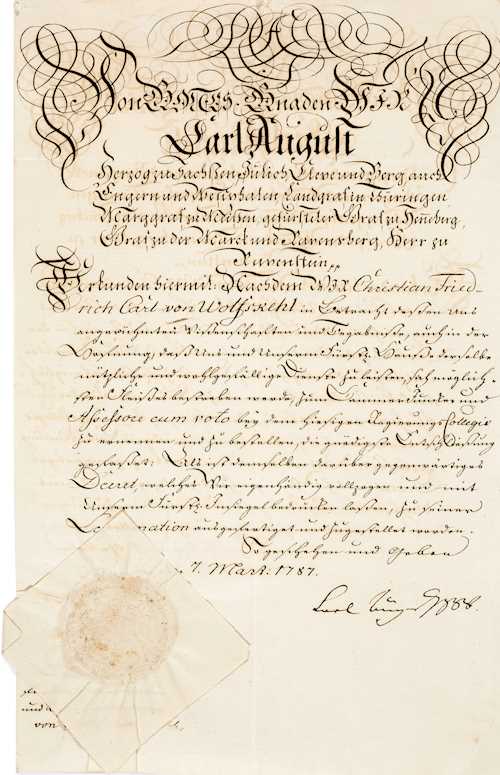 Von GOTTES Gnaden WIR
Carl August
Herzog zu Sachßen, Jülich, Cleve und Berg, auch
Engern und Westphalen, Landgraf in Thüringen,
Marggraf zu Meißen, gefürsteter Graf zu Henneberg,
Graf zu der Marck und Ravensberg, Herr zu
Ravenstein,,
Urkunden hiermit: Nachdem WIR Christian Fried-
rich Carl von Wolfskehl in Betracht deßen Uns
angerühmten Wißenschaften und Begabniße, auch in der
Hofnung, daß Uns und Unserm Fürstl: Hauße derselbe
nützliche und wohlgefällige Dienste zu leisten, sich möglich-
sten Fleißes bestreben werde, zum Cammer Juncker und
Assessore cum voto bey dem hiesigen Regierungs Collegio
zu ernennen und zu bestellen, die gnädigste Entschließung
gefaßet: Als ist demselben darüber gegenwärtiges
Decret, welches Wir eigenhändig vollzogen und mit
Unserm Fürstl: Insiegel bedrucken laßen, zu seiner
nation ausgefertiget und zugestellet worden.
So geschehen und Geben
7. Mart: 1787.
Carl August
und
von